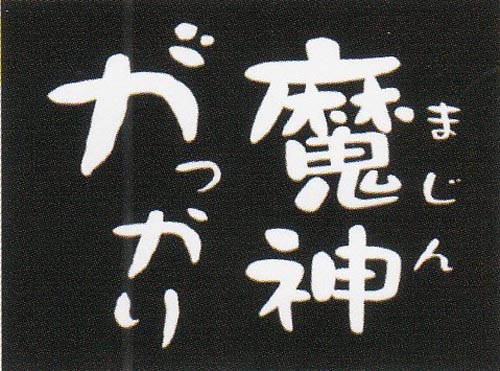 魔神
まじん
がっかり